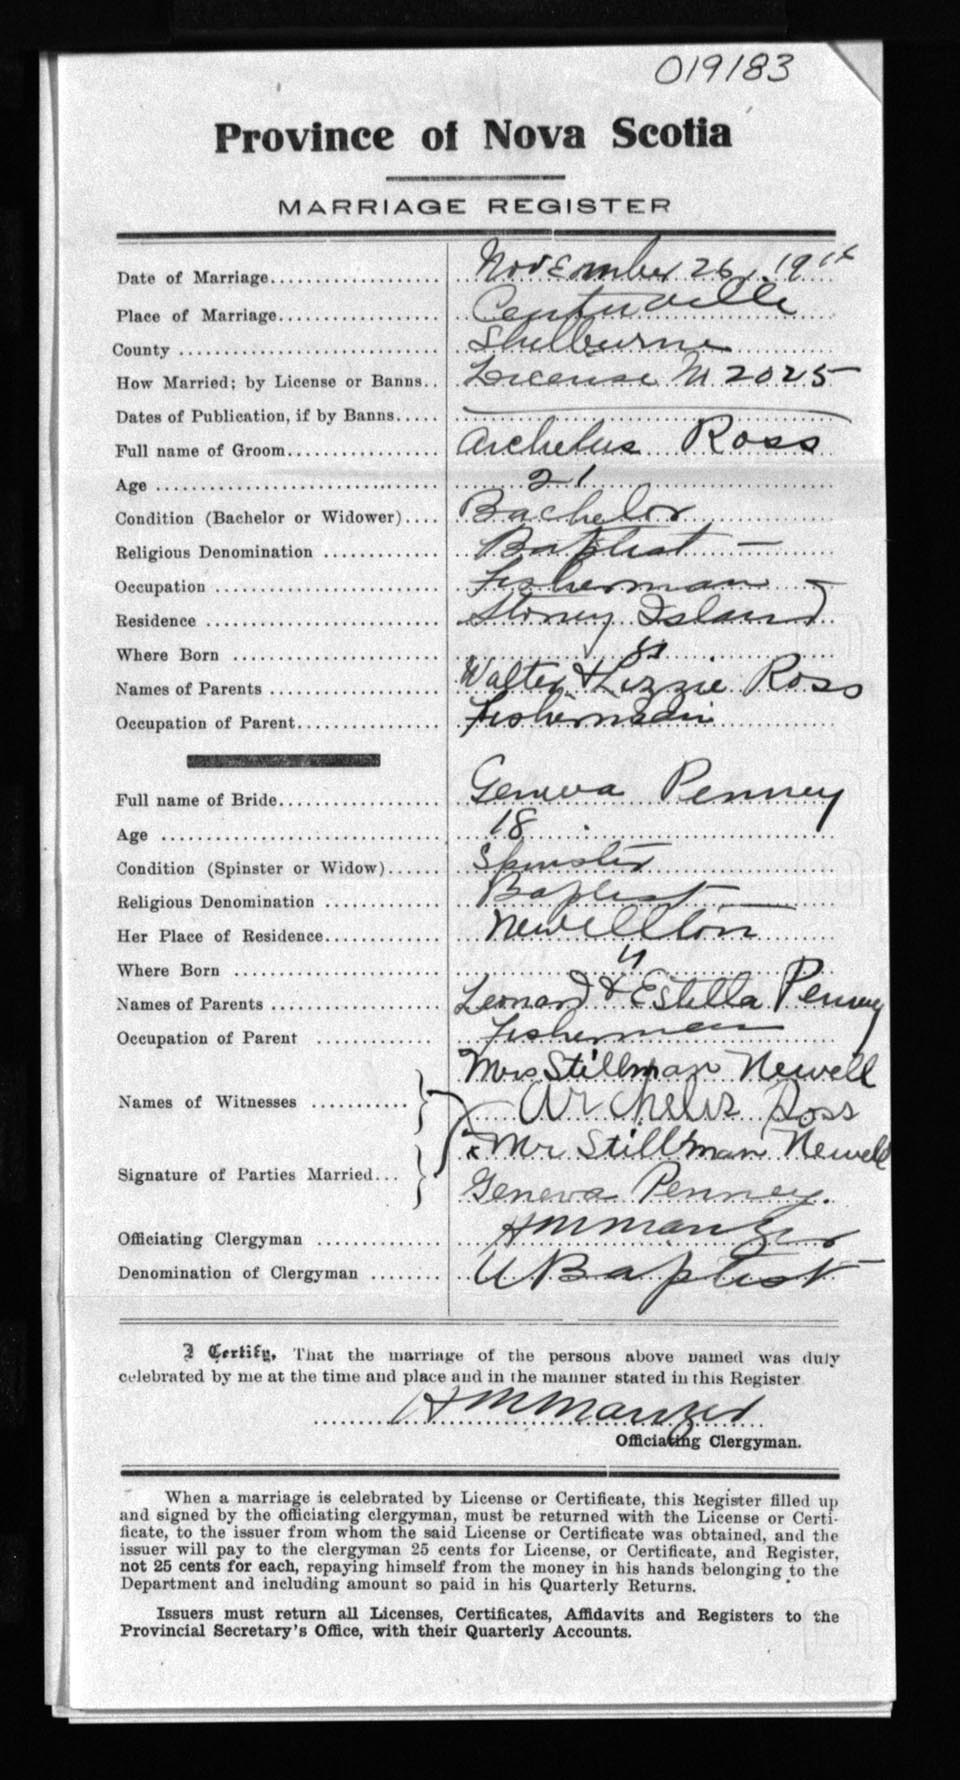 019183
Province of Nova Scotia
MARRIAGE REGISTER
Date of Marriage................... November 26, 19
Place of Marriage.................. Centreville
County ............................. Shelburne
How Married; by License or Banns.. License M 2025
Dates of Publication, if by Banns.....
Full name of Groom.................. Archelus Ross
Age ................................ 21
Condition (Bachelor or Widower).... Bachelor
Religious Denomination ............ Baptist —
Occupation ......................... Fisherman
Residence .......................... Stoney Island
Where Born ........................ "
Names of Parents .................. Walter & Lizzie Ross
Occupation of Parent............... Fisherman
Full name of Bride.................. Geneva Penney
Age ............................... 18
Condition (Spinster or Widow)...... Spinster
Religious Denomination ............ Baptist
Her Place of Residence............. Newellton
Where Born ........................ "
Names of Parents .................. Leonard & Estella Penney
Occupation of Parent ............. Fisherman
Mrs Stillman Newell
Names of Witnesses ........... Archelis Ross
x Mr Stillman Newell
Signature of Parties Married... Geneva Penney.
Officiating Clergyman ............. H M Manzer
Denomination of Clergyman ........ U Baptist
I Certify, That the marriage of the persons above named was duly
celebrated by me at the time and place and in the manner stated in this Register
H M Manzer
Officiating Clergyman.
When a marriage is celebrated by License or Certificate, this Register filled up
and signed by the officiating clergyman, must be returned with the License or Certi-
ficate, to the issuer from whom the said License or Certificate was obtained, and the
issuer will pay to the clergyman 25 cents for License, or Certificate, and Register,
not 25 cents for each, repaying himself from the money in his hands belonging to the
Department and including amount so paid in his Quarterly Returns.
Issuers must return all Licenses, Certificates, Affidavits and Registers to the
Provincial Secretary's Office, with their Quarterly Accounts.